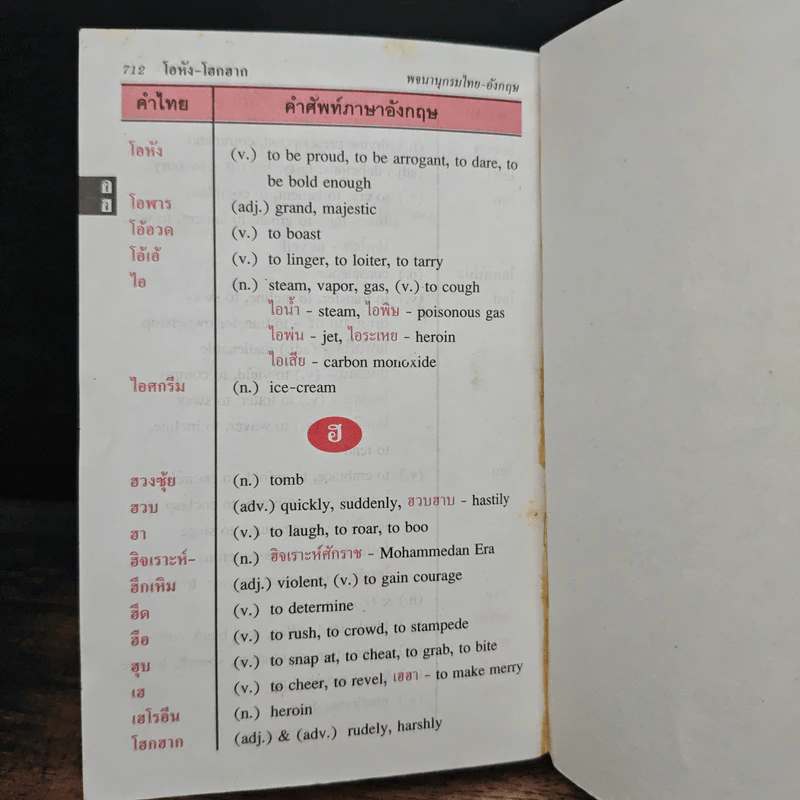 712 โอหัง-โฮกฮาก
พจนานุกรมไทย-อังกฤษ
คำไทย คำศัพท์ภาษาอังกฤษ
โอหัง (v.) to be proud, to be arrogant, to dare, to
be bold enough
โอฬาร (adj.) grand, majestic
โอ้อวด (v.) to boast
โอ้เอ้ (v.) to linger, to loiter, to tarry
ไอ (n.) steam, vapor, gas, (v.) to cough
ไอน้ำ - steam, ไอพิษ - poisonous gas
ไอพ่น - jet, ไอระเหย - heroin
ไอเสีย - carbon monoxide
ไอศกรีม (n.) ice-cream
ฮ
ฮวงซุ้ย (n.) tomb
ฮวบ (adv.) quickly, suddenly, ฮวบฮาบ - hastily
ฮา (v.) to laugh, to roar, to boo
ฮิจเราะห์- (n.) ฮิจเราะห์ศักราช - Mohammedan Era
ฮึกเหิม (adj.) violent, (v.) to gain courage
ฮึด (v.) to determine
ฮือ (v.) to rush, to crowd, to stampede
ฮุบ (v.) to snap at, to cheat, to grab, to bite
เฮ (v.) to cheer, to revel, เฮฮา - to make merry
เฮโรอีน (n.) heroin
โฮกฮาก (adj.) & (adv.) rudely, harshly